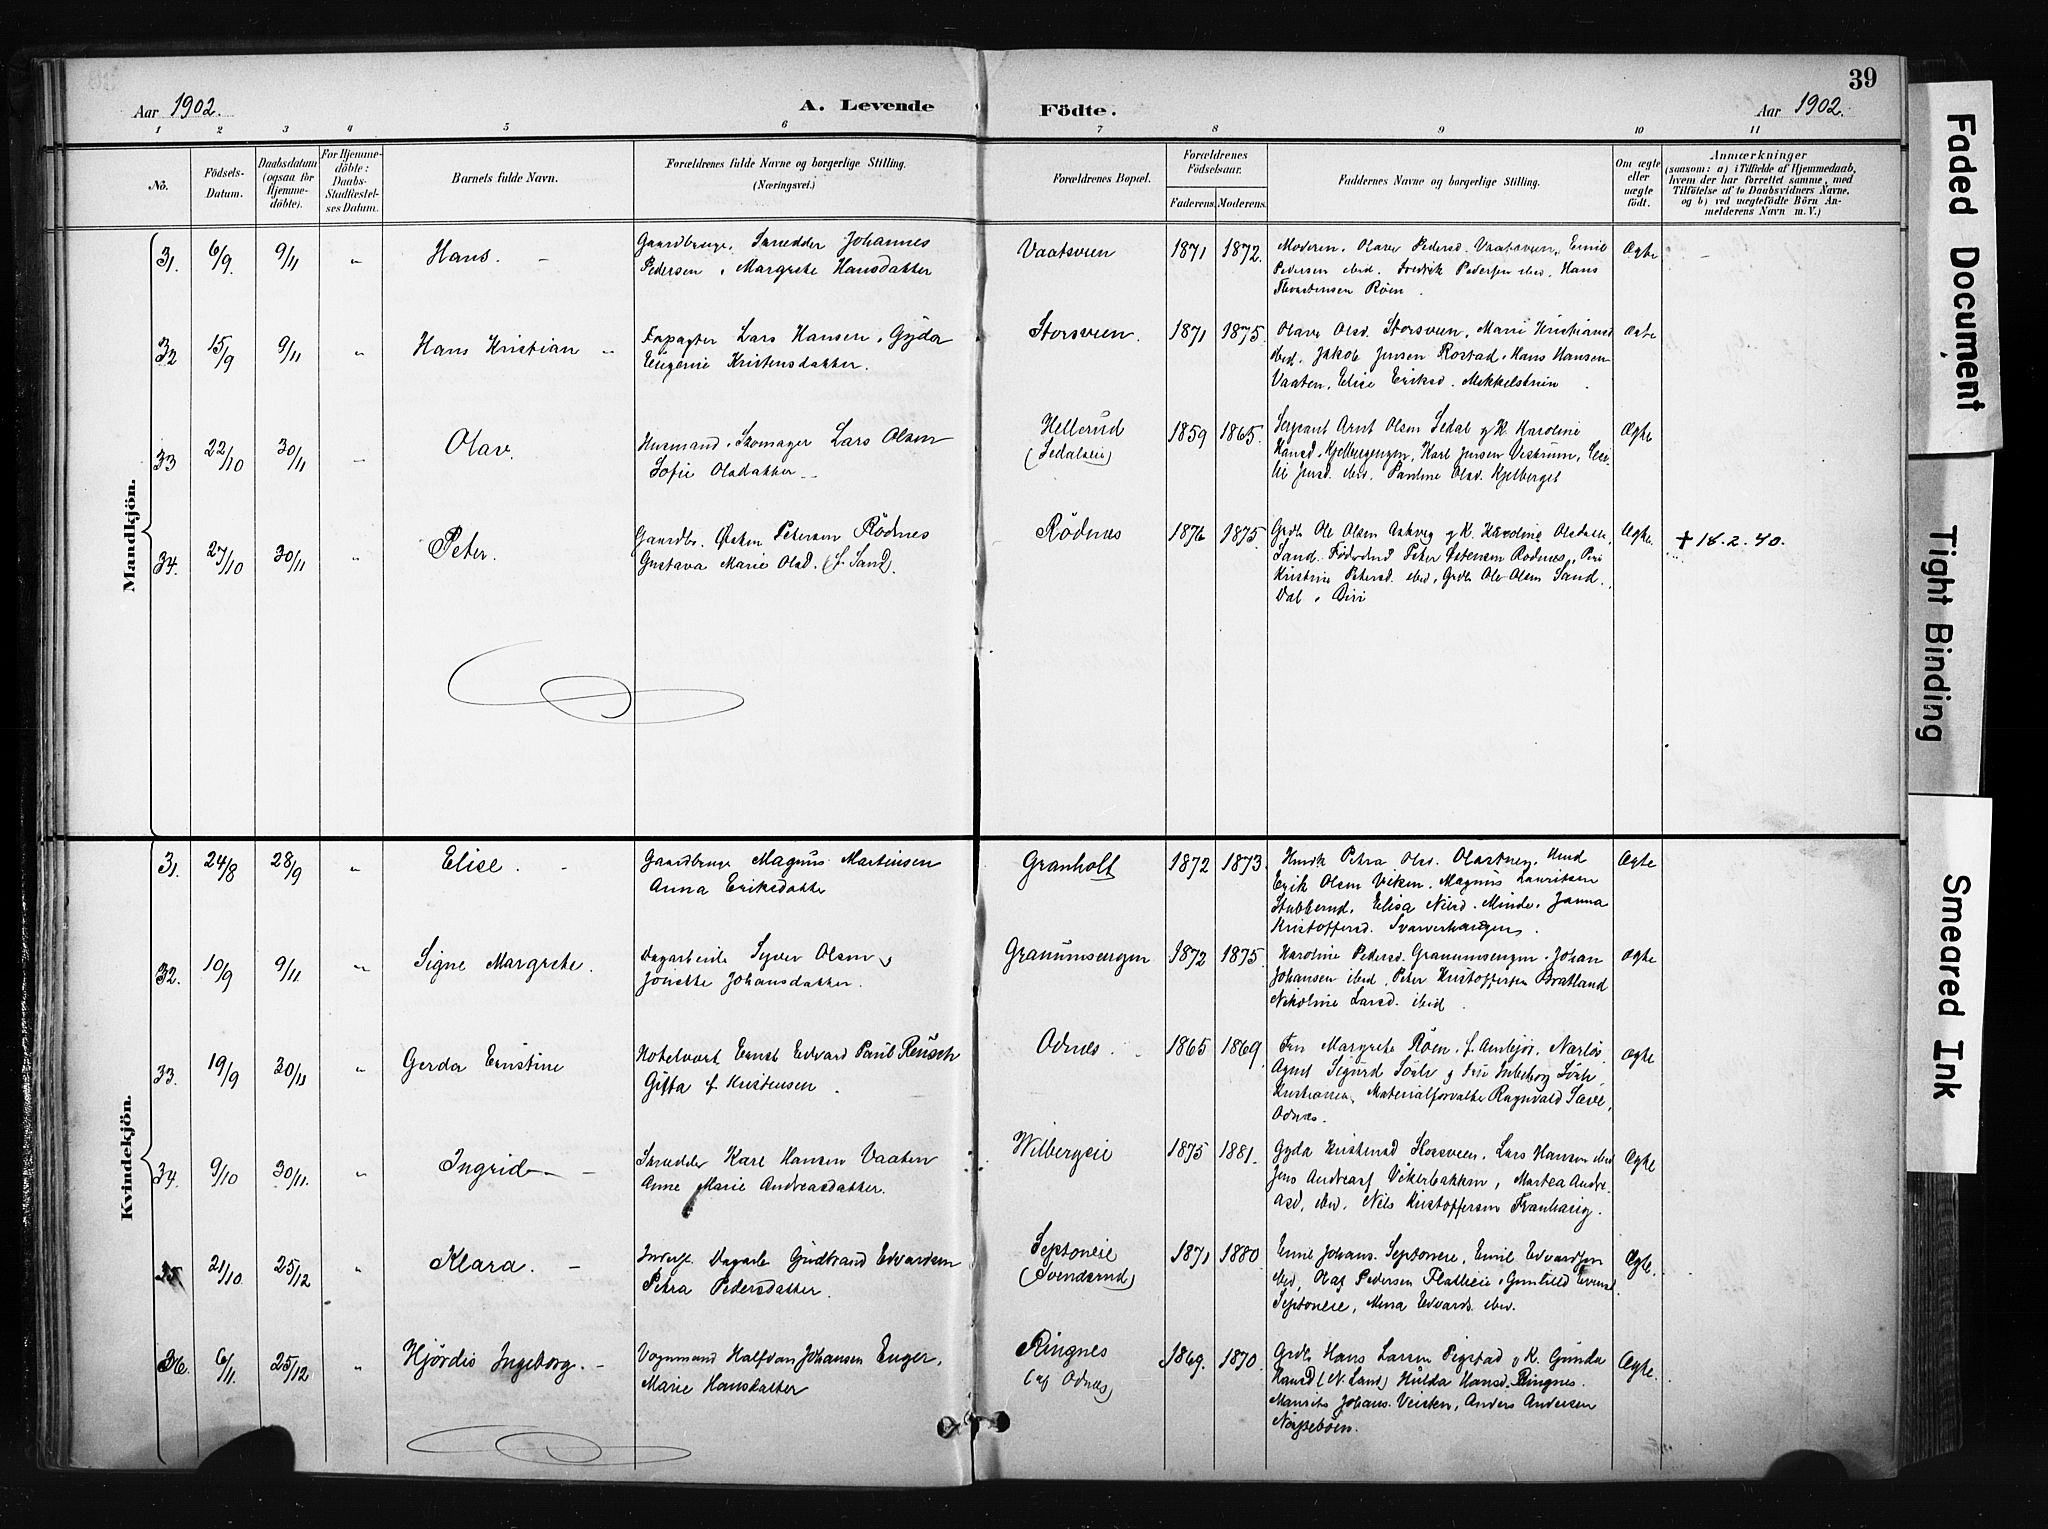 39
Aar 1902.
A. Levende
Födte.
Aar 1902.
1 2 3 4 5 6 7 8 9 10 11
No.
Födsels-Datum.
Daabsdatum (ogsaa for Hjemme-döbte).
For Hjemme-döbte: Daabs-Stadfæstel-ses Datum.
Barnets fulde Navn.
Forældrenes fulde Navne og borgerlige Stilling.
(Næringsvei.)
Forældrenes Bopæl.
Forældrenes Födselsaar.
Faderens. Moderens.
Faddernes Navne og borgerlige Stilling.
Om ægte eller uægte födt.
Anmærkninger
(saasom: a) i Tilfælde af Hjemmedaab,
hvem der har forrettet samme, med
Tilföielse af to Daabsvidners Navne,
og b) ved uægtefödte Börn An-
melderens Navn m. V.)
Mandkjön.
31. 6/9 9/11 " Hans. -
Gaardbruge. Snedder Johannes
Pedersen, Margrete Hansdatter
Vaatsveen 1871 1872.
Moderen. Olave Pedersd. Vaatsveen, Emil
Pedersen ibid. Fredrik Pedersen ibid, Hans
Thorstensen Røen.
Ægte
32 15/9 9/11 " Hans Kristian "
Forpagter Lars Hansen, Gyda
Eugenie Kristensdatter.
Storsveen. 1871 1875.
Olava Olsd. Storsveen, Marie Kristiansd
ibid. Jakob Jensen Rostad, Hans Hansen
Vaaten, Elise Eriksd. Mekkelstuen
Ægte
33 22/10 30/11 Olav.
Husmand, Skomager Lars Olsen
Sofie Olsdatter
Hellerud
(Sedalseie)
1859 1865.
Sergeant Arnt Olsen Sedal og K. Karoline
Hansd. Kjelbergengen, Karl Jensen Vestrum, Ceci-
lie Jensd. ibid, Pauline Olsd. Kjelberget
Ægte
34. 27/10 30/11 " Peter.
Gaardbr. Østen Petersen Rödnes
Gustava Marie Olsd. (f. Sand).
Rödnes 1876 1875.
Grdb. Ole Olsen Askveg og K. Karoline Olsdatter,
Sand. Föderaad Peter Østensen Rodnes,
Kristine Petersd. ibid, Grdb. Ole Olsen Sand
Dal, Biri
Ægte. + 18.2.40.
Kvindekjön.
31. 24/8 28/9 " Elise. -
Gaardbruge Magnus Martinsen
Anna Eriksdatter
Granholt 1872 1873.
Petra Olsd.
Erik Olsen Viken. Magnus Lauritsen
Stubberud, Elisa Nilsd. Minde, Janna
Kristoffersd. Svarverhaugen.
Ægte
32. 10/9 9/11 " Signe Margrete.
Dagarbeide Syver Olsen,
Jonette Johansdatter.
Granumsengen 1872 1875.
Karoline Pedersd. Granumsengen. Johan
Johansen ibid, Peter Kristoffersen Bratland
Nikoline Larsd. ibid.
Ægte
33. 19/9 30/11 " Gerda Ernstine
Hotelvært Ernst Edvard Paul Reusch
Gitta f. Kristensen.
Odnæs. 1865 1869.
Fru Margrete Røen, f. Amlejor.
Agent Sigurd Sörli og Frue Ingeborg
Kristiania, Materialforvalter Ragnvald
Odnæs.
Ægte
34. 9/10 30/11. " Ingrid -
Snedder Karl Hansen Vaaten
Anne Marie Andreasdatter.
Wilbergseie 1875 1881.
Gyda Kristensd Storsveen. Lars Hansen ibid
Jens Andreasf Vikerbakken, Martea Andre-
asd, ibid, Nils Kristoffersen Franhaug.
Ægte
35 21/10. 25/12 " Klara. -
Inderst. Dagarb. Gudbrand Edvardsen
Petra Pedersdatter.
Septoneie
(Svenderud)
1871 1880.
Emil Johans. Septoneie, Emil Edvardsen
ibid, Olaf Pedersen Flatleie, Gunhild Evensd
Septoneie, Mina Edvards. ibid.
Ægte.
36. 6/11. 25/12 " Hjördis Ingeborg. -
Vognmand Halfdan Johansen Enger,
Marie Hansdatter
Ringnes
(af Odnæs)
1869. 1870.
Grdb. Hans Larsen Pigstad og K. Gunda
Hansd (N. Land) Hulda Hansd. Ringnes.
Maurits Johans. Veisten, Anders Andersen
Ægte.
Faded Document
Tight Binding
Smeared Ink